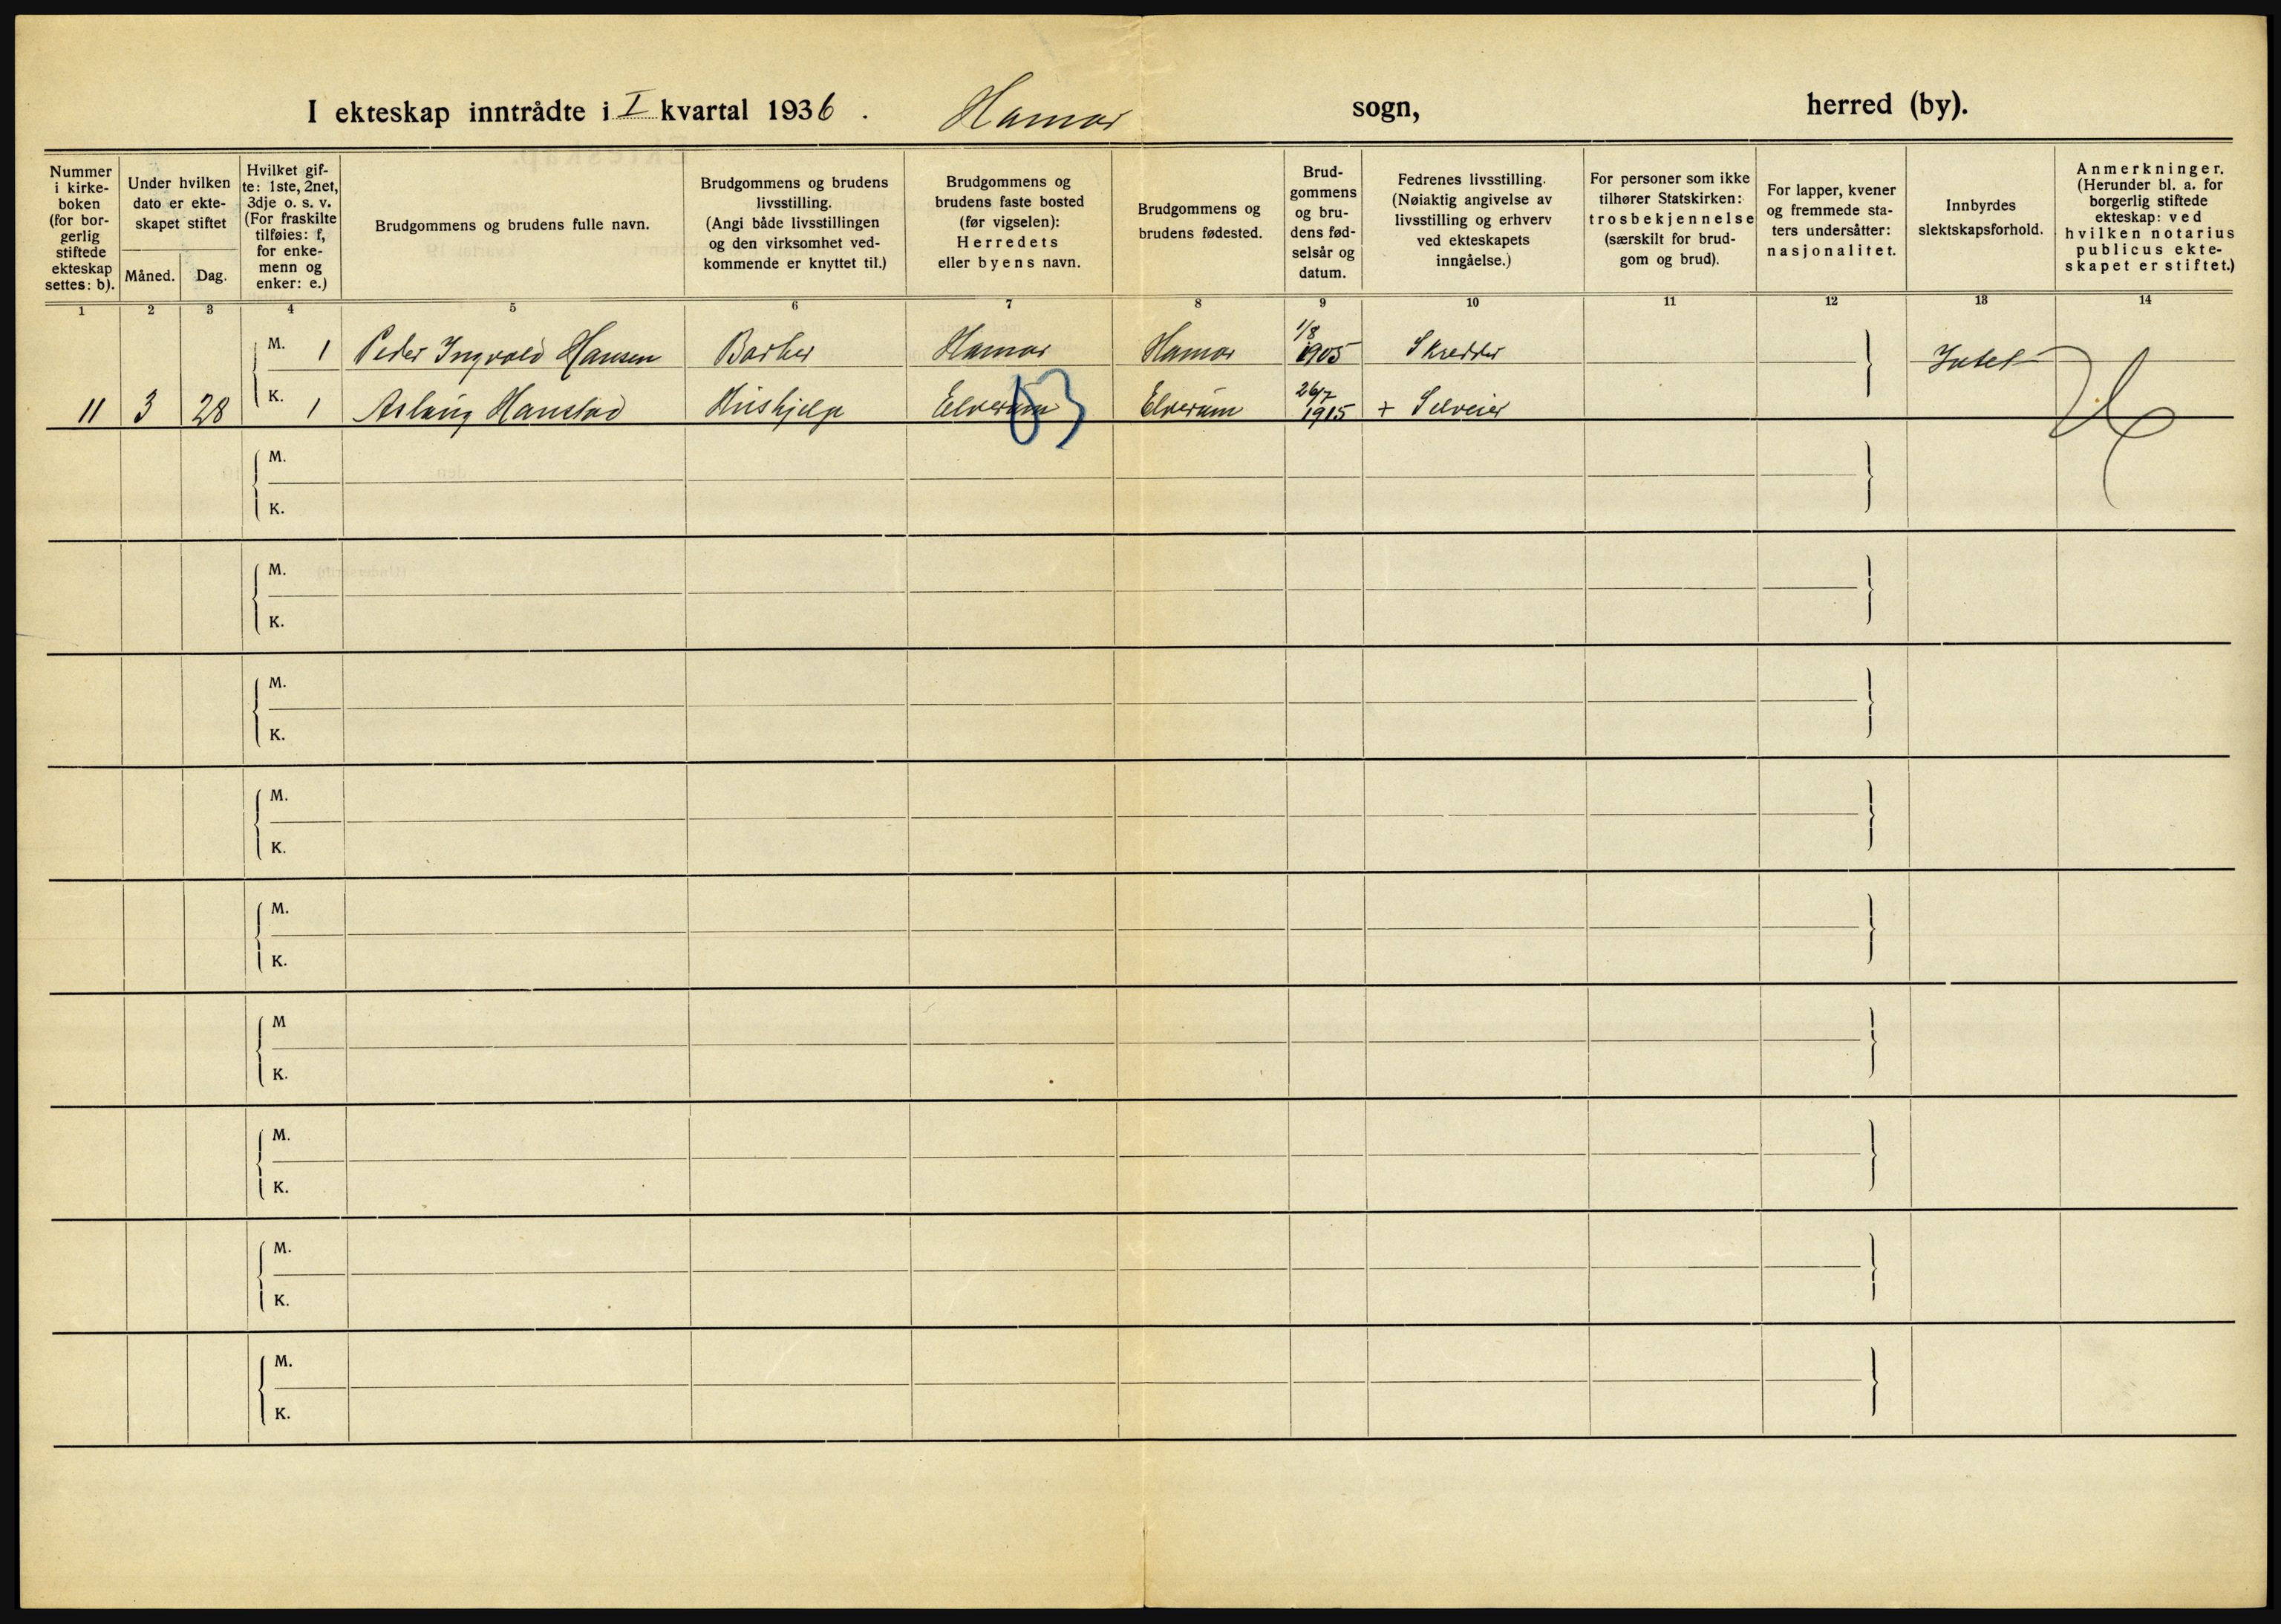 I ekteskap inntrådte i I kvartal 1936. Hamar sogn, herred (by).
Nummer i kirke-boken (for bor-gerlig stiftede ekteskap settes: b).
Under hvilken dato er ekte-skapet stiftet
Måned.
Dag.
Hvilket gif-te: 1ste, 2net, 3dje o. s. v. (For fraskilte tilføies: f, for enke-menn og enker: e.)
Brudgommens og brudens fulle navn.
Brudgommens og brudens livsstilling. (Angi både livsstillingen og den virksomhet ved-kommende er knyttet til.)
Brudgommens og brudens faste bosted (før vigselen): Herredets eller byens navn.
Brudgommens og brudens fødested.
Brud-gommens og bru-dens fød-selsår og datum.
Fedrenes livsstilling. (Nøiaktig angivelse av livsstilling og erhverv ved ekteskapets inngåelse.)
For personer som ikke tilhører Statskirken: trosbekjennelse (særskilt for brud-gom og brud).
For lapper, kvener og fremmede sta-ters undersåtter: nasjonalitet.
Innbyrdes slektskapsforhold.
Anmerkninger. (Herunder bl. a. for borgerlig stiftede ekteskap: ved hvilken notarius publicus ekte-skapet er stiftet.)
1 2 3 4 5 6 7 8 9 10 11 12 13 14
M. 1 Peder Ingvald Hansen Barber Hamar Hamar 1/8 1905 Skredder Intet
11 3 28 K. 1 Aslaug Hanstad Hushjelp Elverum 03 Elverum 26/7 1915 + Selveier
M.
K.
M.
K.
M.
K.
M.
K.
M.
K.
M
K.
M.
K.
M.
K.
M.
K.